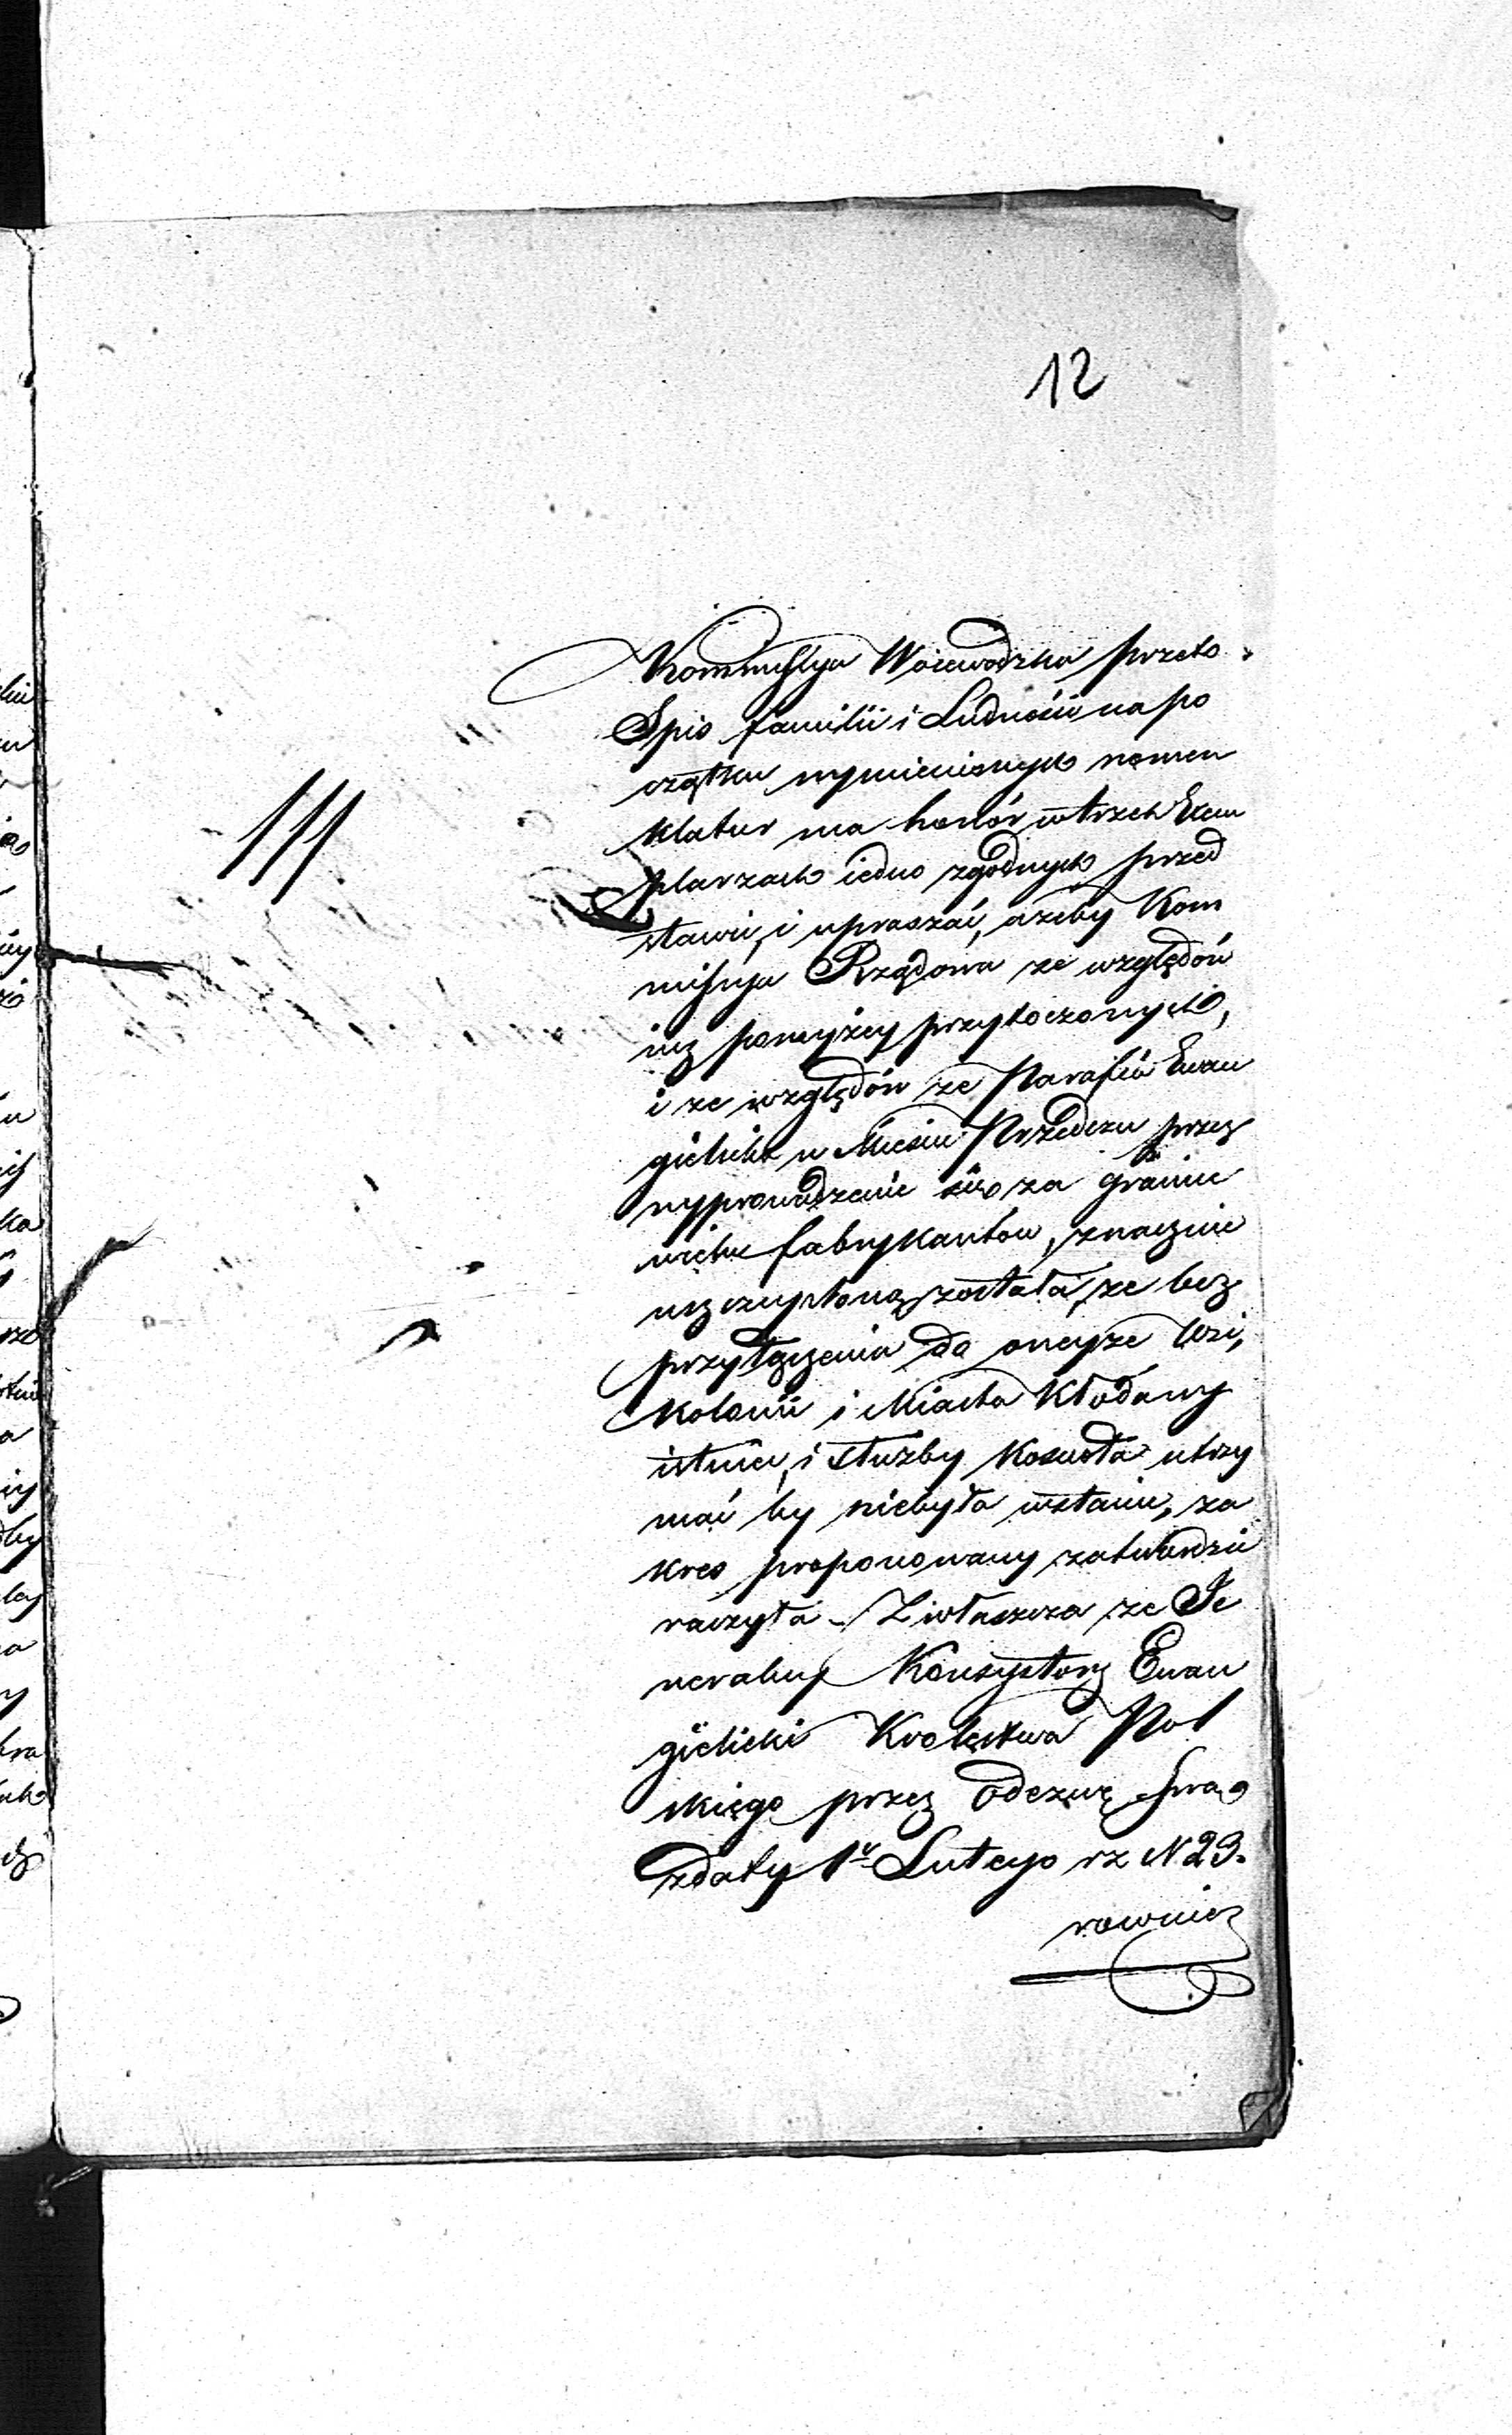 12
Kommissya Woiewodzka przeto
Spis familii i Ludności na po
czątku wymienionych nomen
klatur ma honór w trzech Exem
plarzach iedno zgodnych przed
stawić, i upraszać, ażeby Kom
missya Rządowa ze względów
iuz powyżey przytoczonych,
i ze względów ze Parafia Ewan
gielicka w Mieście Przedczu przez
wyprowadzenie się za granice
wielu fabrykantow, znacznie
uszczuploną została, ze bez
przyłączenia do oneyze wsi,
kolonii i Miasta Kłodawy
istnieć, i służby Koscioła utrzy
mać by niebyła wstanie, za
kres proponowany zatwierdzić
raczyła. Zwłaszcza ze Je
neralny Konsystorz Ewan
gielicki Krolestwa Pol
skiego przez Odezwę swą
z daty 1º Lutego rz N 23.
rownież